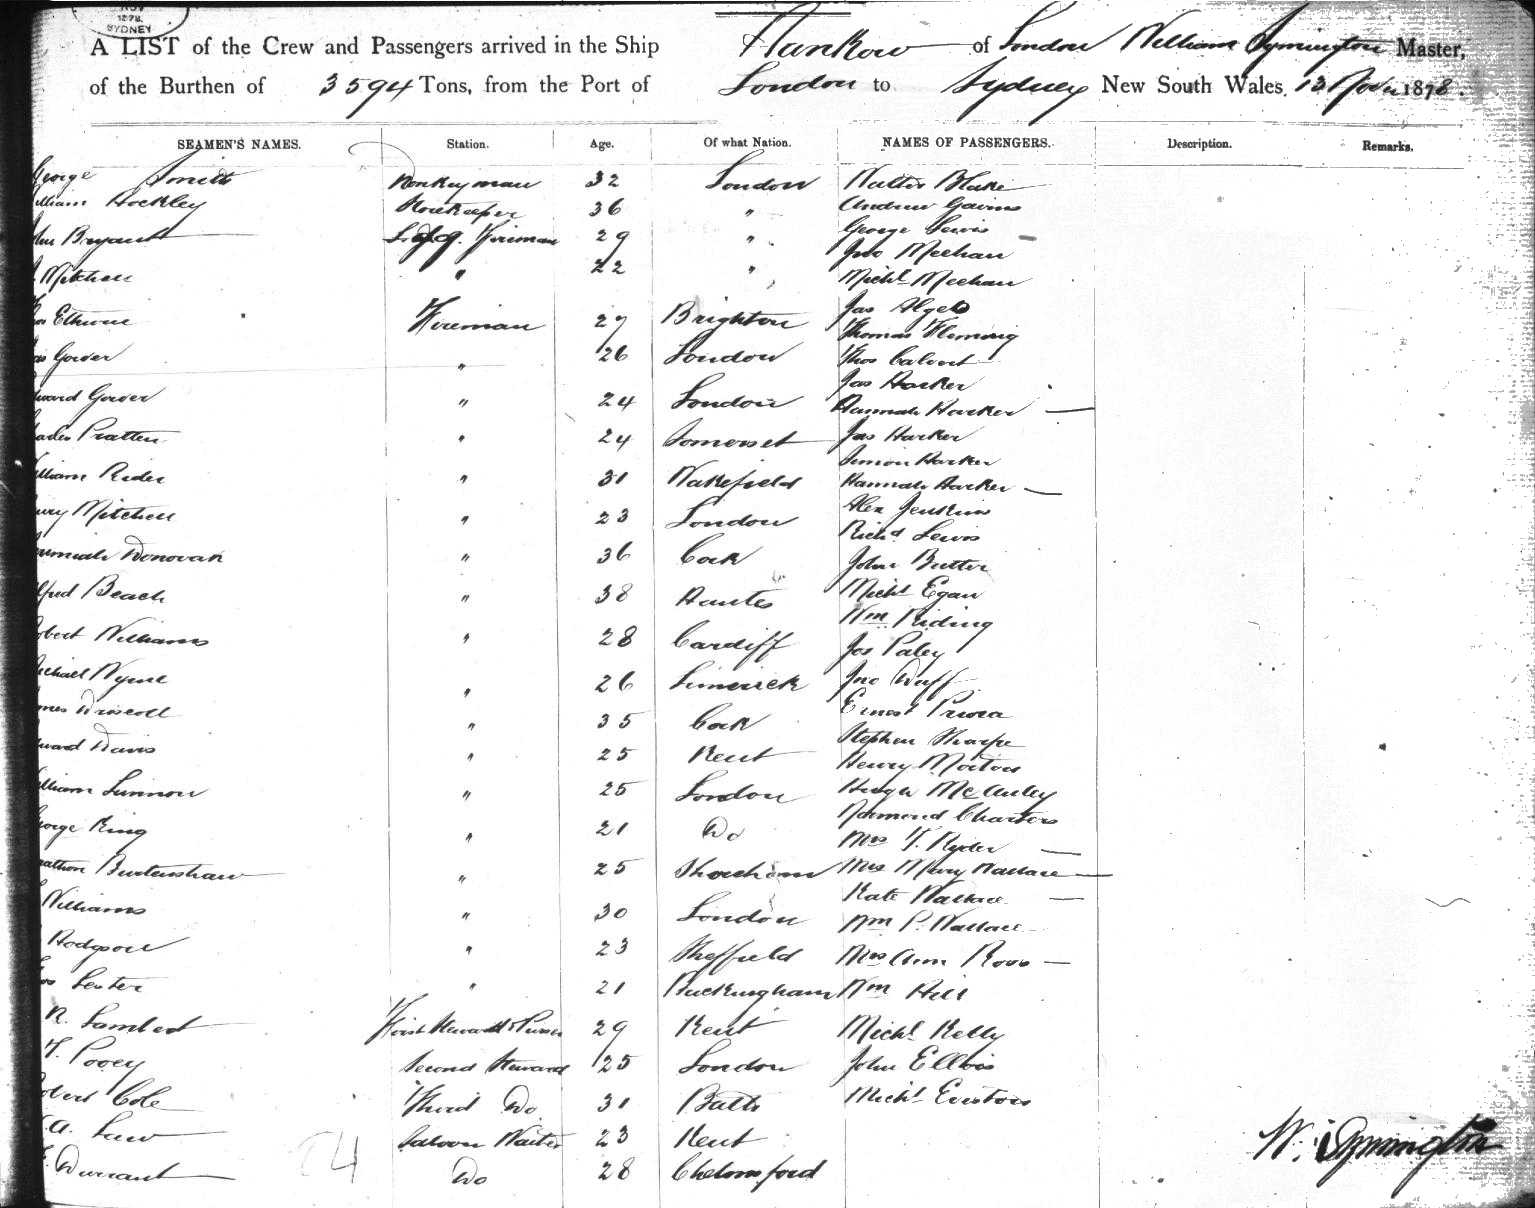 NOV
1878
SYDNEY
A LIST of the Crew and Passengers arrived in the Ship Hankow of London William Symington Master,
of the Burthen of 3594 Tons, from the Port of London to Sydney New South Wales, 13 Novr 1878.
SEAMEN'S NAMES. Station. Age. Of what Nation. NAMES OF PASSENGERS. Description. Remarks.
George Smith Donkeyman 32 London Walter Blake
William Hockley Storekeeper 36 " Andrew Gavins
Bryant Fireman 29 " George Lewis
Mitchell " 22 " Jno Meehan
Michl Meehan
Fireman 27 Brighton Jas
Thomas Fleming
Gower " 26 London Thos Calvert
Jas Harker
Edward Gower " 24 London Hannah Harker
Charles Pratten " 24 Somerset Jas Harker
Simon Harker
William Rider " 31 Wakefield Hannah Harker
Henry Mitchell " 23 London Alex Jenkins
Richd Lewis
Jeremiah Donovan " 36 Cork John Butler
Alfred Beach " 38 Hants Michl Egan
Wm Riding
Robert Williams " 28 Cardiff Jos Paley
Michael Wynne " 26 Limerick Jno Duff
James Driscoll " 35 Cork Ernest
Stephen Sharpe
Edward Davis " 25 Kent Henry Morton
William Linnon " 25 London Hugh McAuley
Charters
George King " 21 Do Mrs F. Ryder
Burtenshaw " 25 Shoreham Mrs Mary Wallace
Kate Wallace
Williams " 30 London Wm P. Wallace
Hodgson " 23 Sheffield Mrs Ann Ross
Lester " 21 Buckingham Wm Hill
R. Lambert First Steward & Purser 29 Kent Michl Kelly
F. Povey Second Steward 25 London John Ellis
Robert Cole Third Do 31 Bath Michl
A. Law Saloon Waiter 23 Kent
Durrant Do 28 Chelmsford
W. Symington